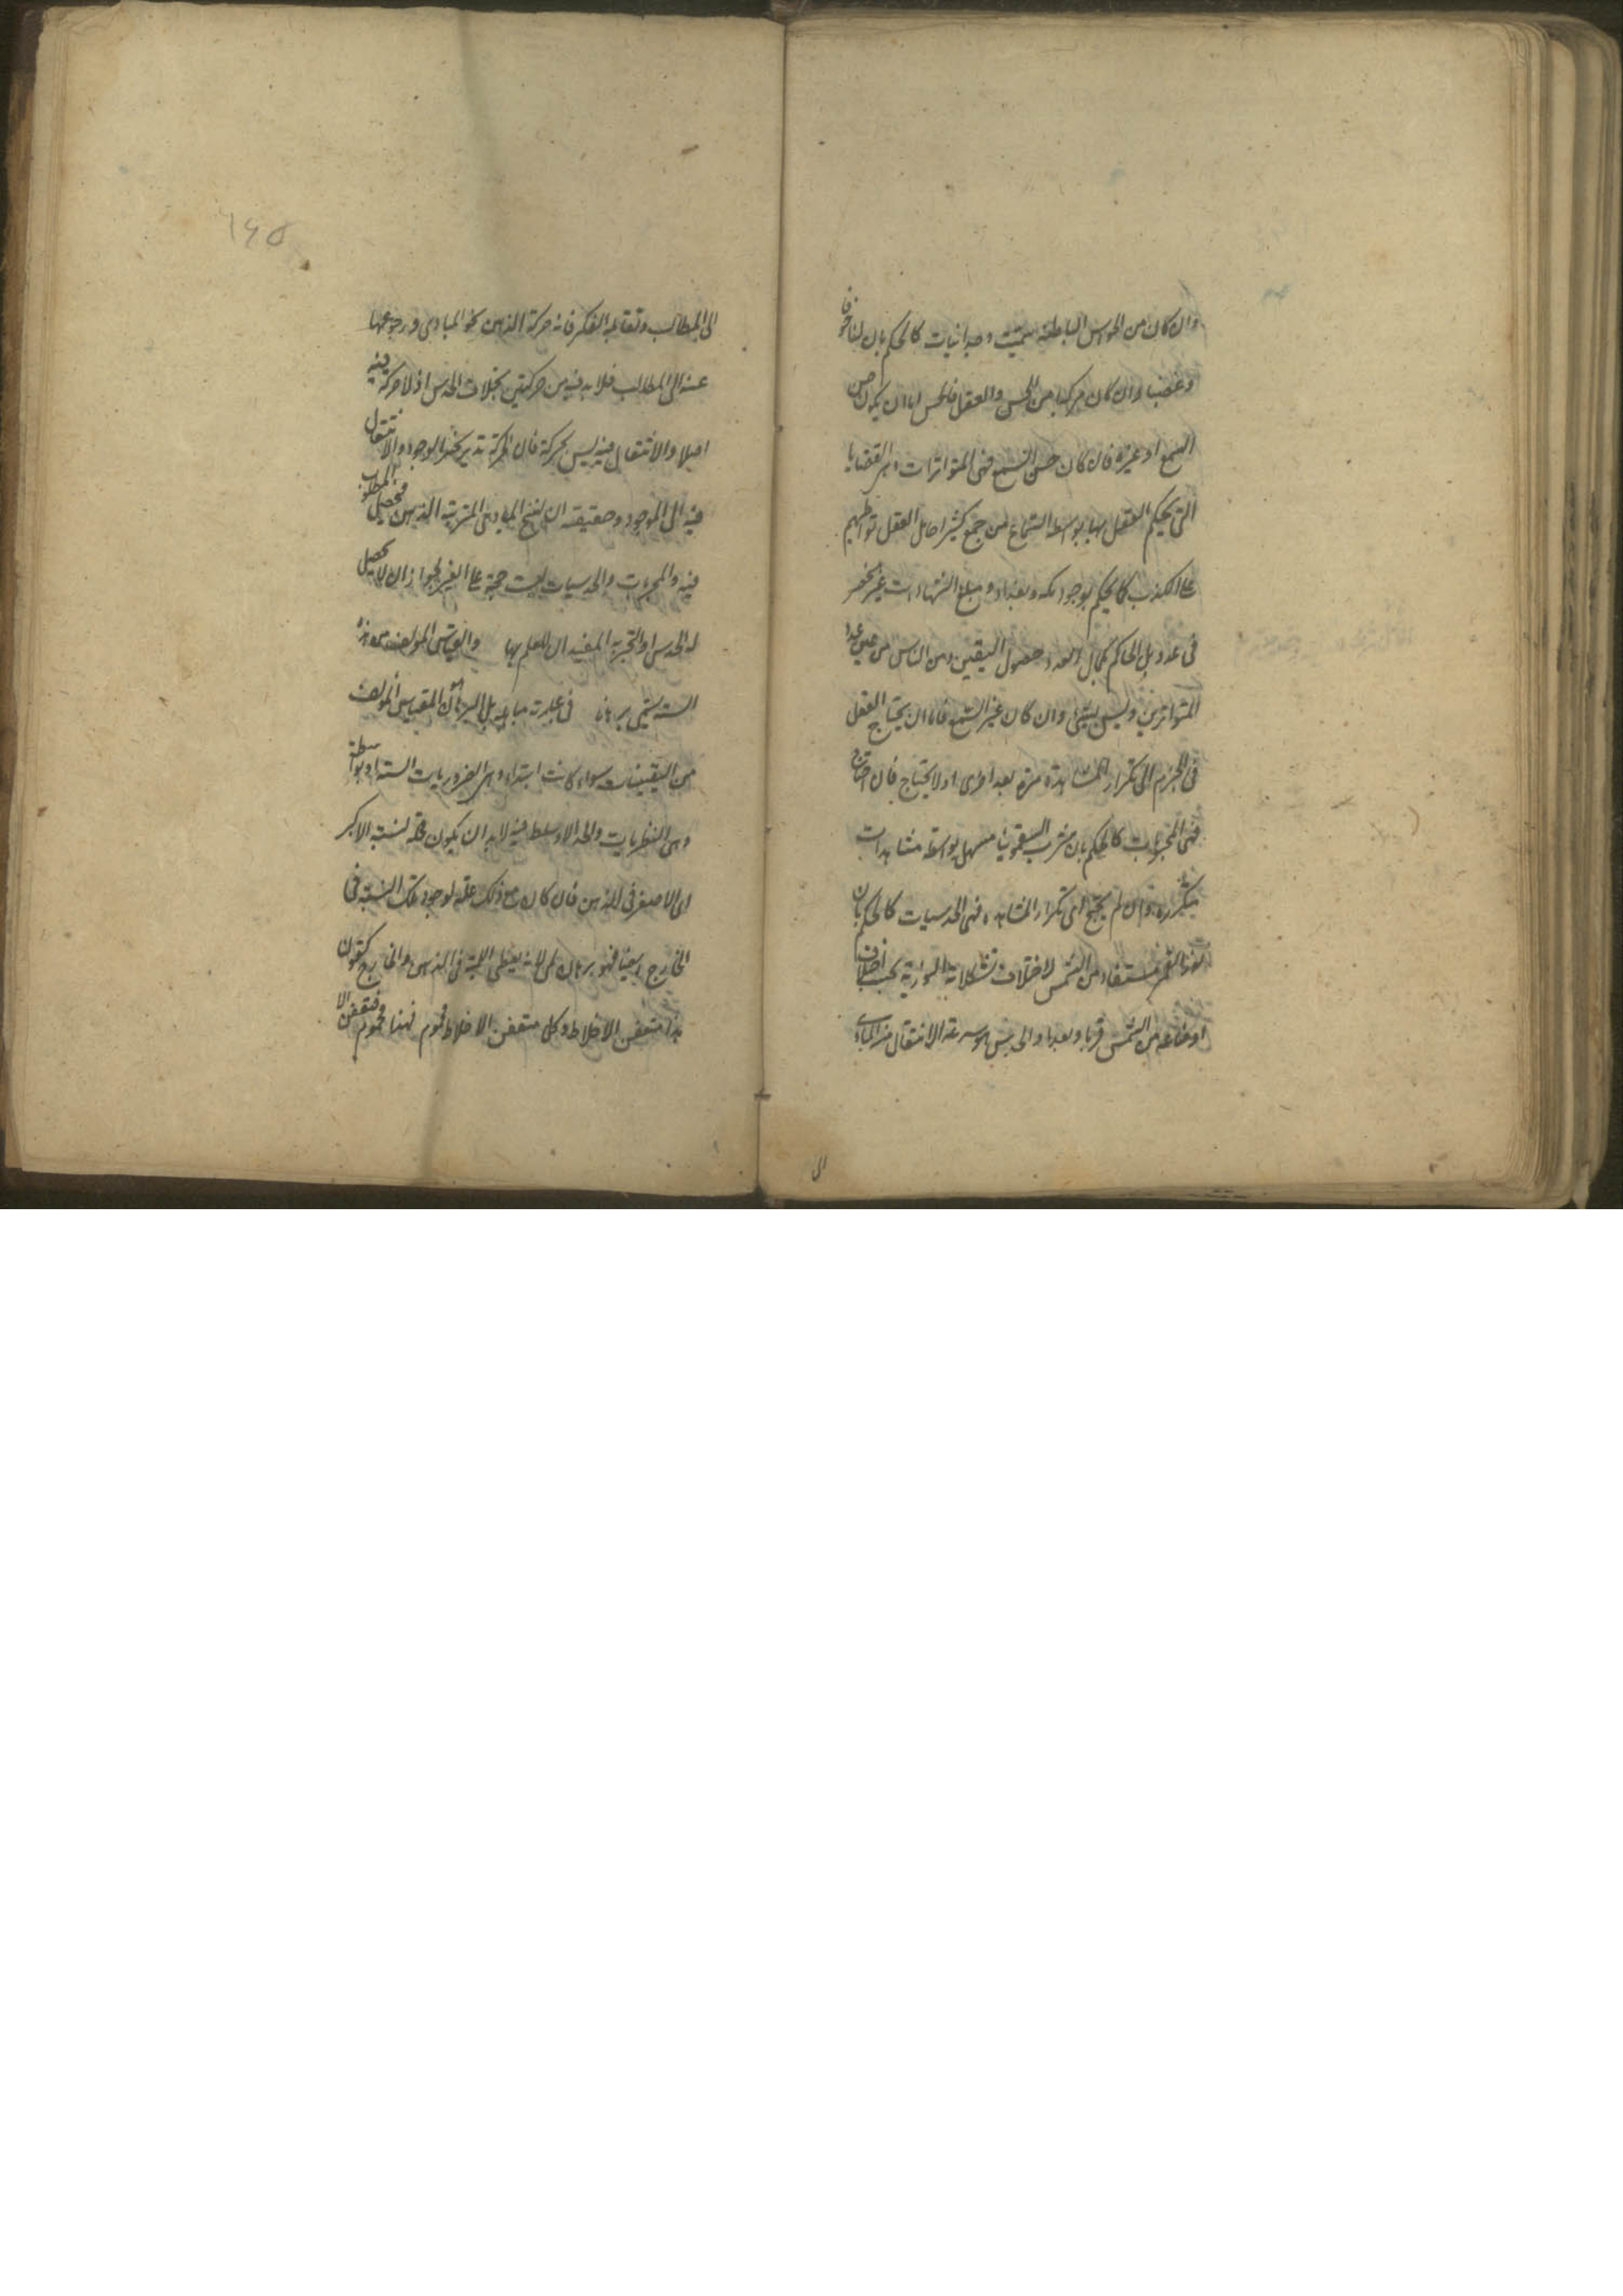 وان كان من الحواس الباطنة سميت وجدانيات كالحكم بان لنا خوفا
وغضبا وان كان مركبا من الحس والعقل فالحس اما ان يكون حس
السمع او غيره فان كان حس السمع فهي المتواترات وهي القضايا
التي يحكم العقل بها بواسطة السماع من جمع كثير احال العقل تواطئهم
على الكذب كالحكم بوجود مكه وبغداد ومبلغ الشهادات غير منحصر
في عدد بل الحاكم بكمال العدد حصول اليقين ومن الناس من عين عدد
المتواترين وليس بشئ وان كان غير السمع فاما ان يحتاج العقل
في الجزم الى تكرار المشاهدة مرة بعد اخرى او لا يحتاج فان احتاج
فهي المجربات كالحكم بان شرب السقمونيا مسهل بواسطة مشاهدات
متكررة وان لم يحتج الى تكرار المشاهده فهي الحدسيات كالحكم بان
نور القمر مستفاد من الشمس لاختلاف تشكلاته النورية بحسب اختلاف
اوضاعه من الشمس قربا وبعدا والحدس هو سرعة الانتقال من المبادى
الى
١٦٥
الى المطالب وتقابله الفكر فانه حركة الذهن نحو المبادى ورجوعها
عنه الى المطالب فلا بد فيه من حركتين بخلاف الحدس اذ لا حركة فيه
اصلا والانتقال فيه ليس بحركة فان الحركة تدريجية الوجود والانتقال
فيه آنى الوجود وحقيقته ان تسنح المبادى المرتبة في الذهن فيحصل المطلوب
فيه والمجربات والحدسيات ليست حجة على الغير لجواز ان لا يحصل
له الحدس او التجربة المفيد ان للعلم بها والقياس المولف من هذه
الستة يسمى برهانا في عبارته مساهلة بل البرهان هو القياس المولف
من اليقينيات سواء كانت ابتداء وهي الضروريات الستة او بواسطة
وهي النظريات والحد الاوسط فيه لا بد ان يكون علة لنسبة الاكبر
الى الاصغر في الذهن فان كان مع ذلك علة لوجود تلك النسبة في
الخارج ايضا فهو برهان لمى لانه يعطى اللمية في الذهن والخارج كقولن
هذا متعفن الاخلاط وكل متعفن الاخلاط محموم فهذا محموم فتعفن الا